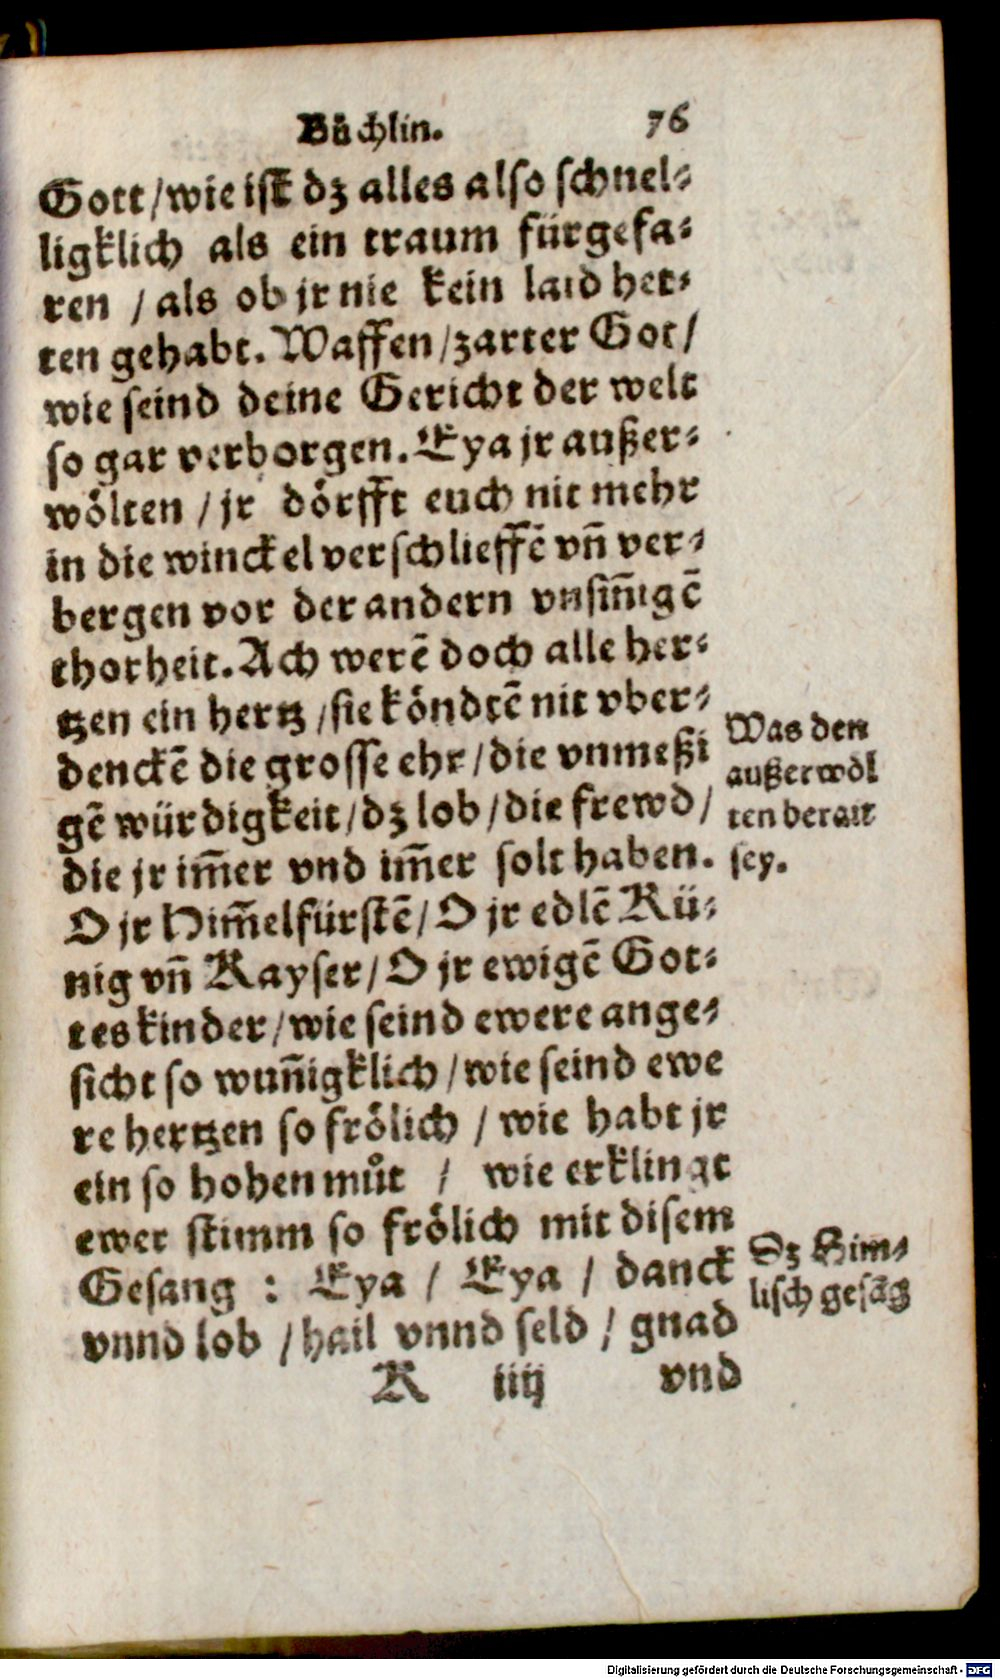 Bůchlin. 76
Gott/wie ist dz alles also schnel-
ligklich als ein traum fürgefa-
ren / als ob jr nie kein laid het-
ten gehabt. Waffen/zarter Got/
wie seind deine Gericht der welt
so gar verborgen. Eya jr außer-
wölten / jr dörfft euch nit mehr
in die winckel verschlieffē vñ ver-
bergen vor der andern vnsiñigē
thorheit. Ach werē doch alle her-
tzen ein hertz/sie köndtē nit vber-
denckē die grosse ehr/die vnmeßi
gē würdigkeit/dz lob/die frewd/
die jr im̃er vnd im̃er solt haben.
O jr Him̃elfürstē/O jr edlē Kü-
nig vñ Kayser/O jr ewigē Got-
tes kinder/wie seind ewere ange-
sicht so wuñigklich/wie seind ewe
re hertzen so frölich / wie habt jr
ein so hohen můt / wie erklingt
ewer stimm so frölich mit disem
Gesang : Eya / Eya / danck
vnnd lob /hail vnnd seld / gnad
K iiij vnd
Was den
außerwöl
ten berait
sey.
Dz Him-
lisch gesāg
Digitalisierung gefördert durch die Deutsche Forschungsgemeinschaft - DFG